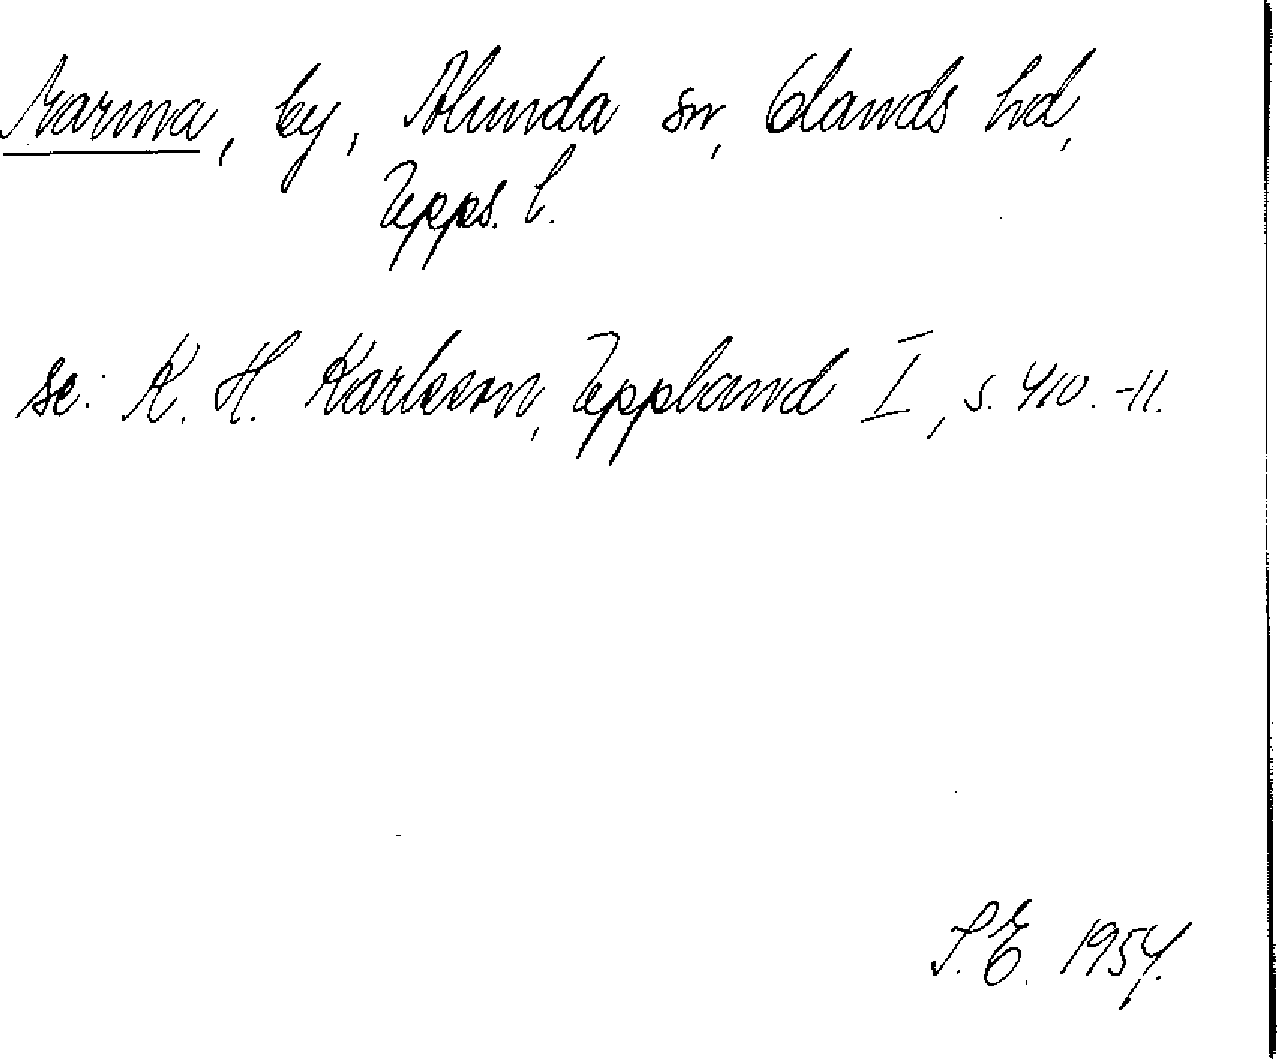 Marma, by, Alunda sn, Olands hd,
Upps. l.
se: K. H. Karlsson, Uppland I, s. 410.-11.
S. E. 1954.